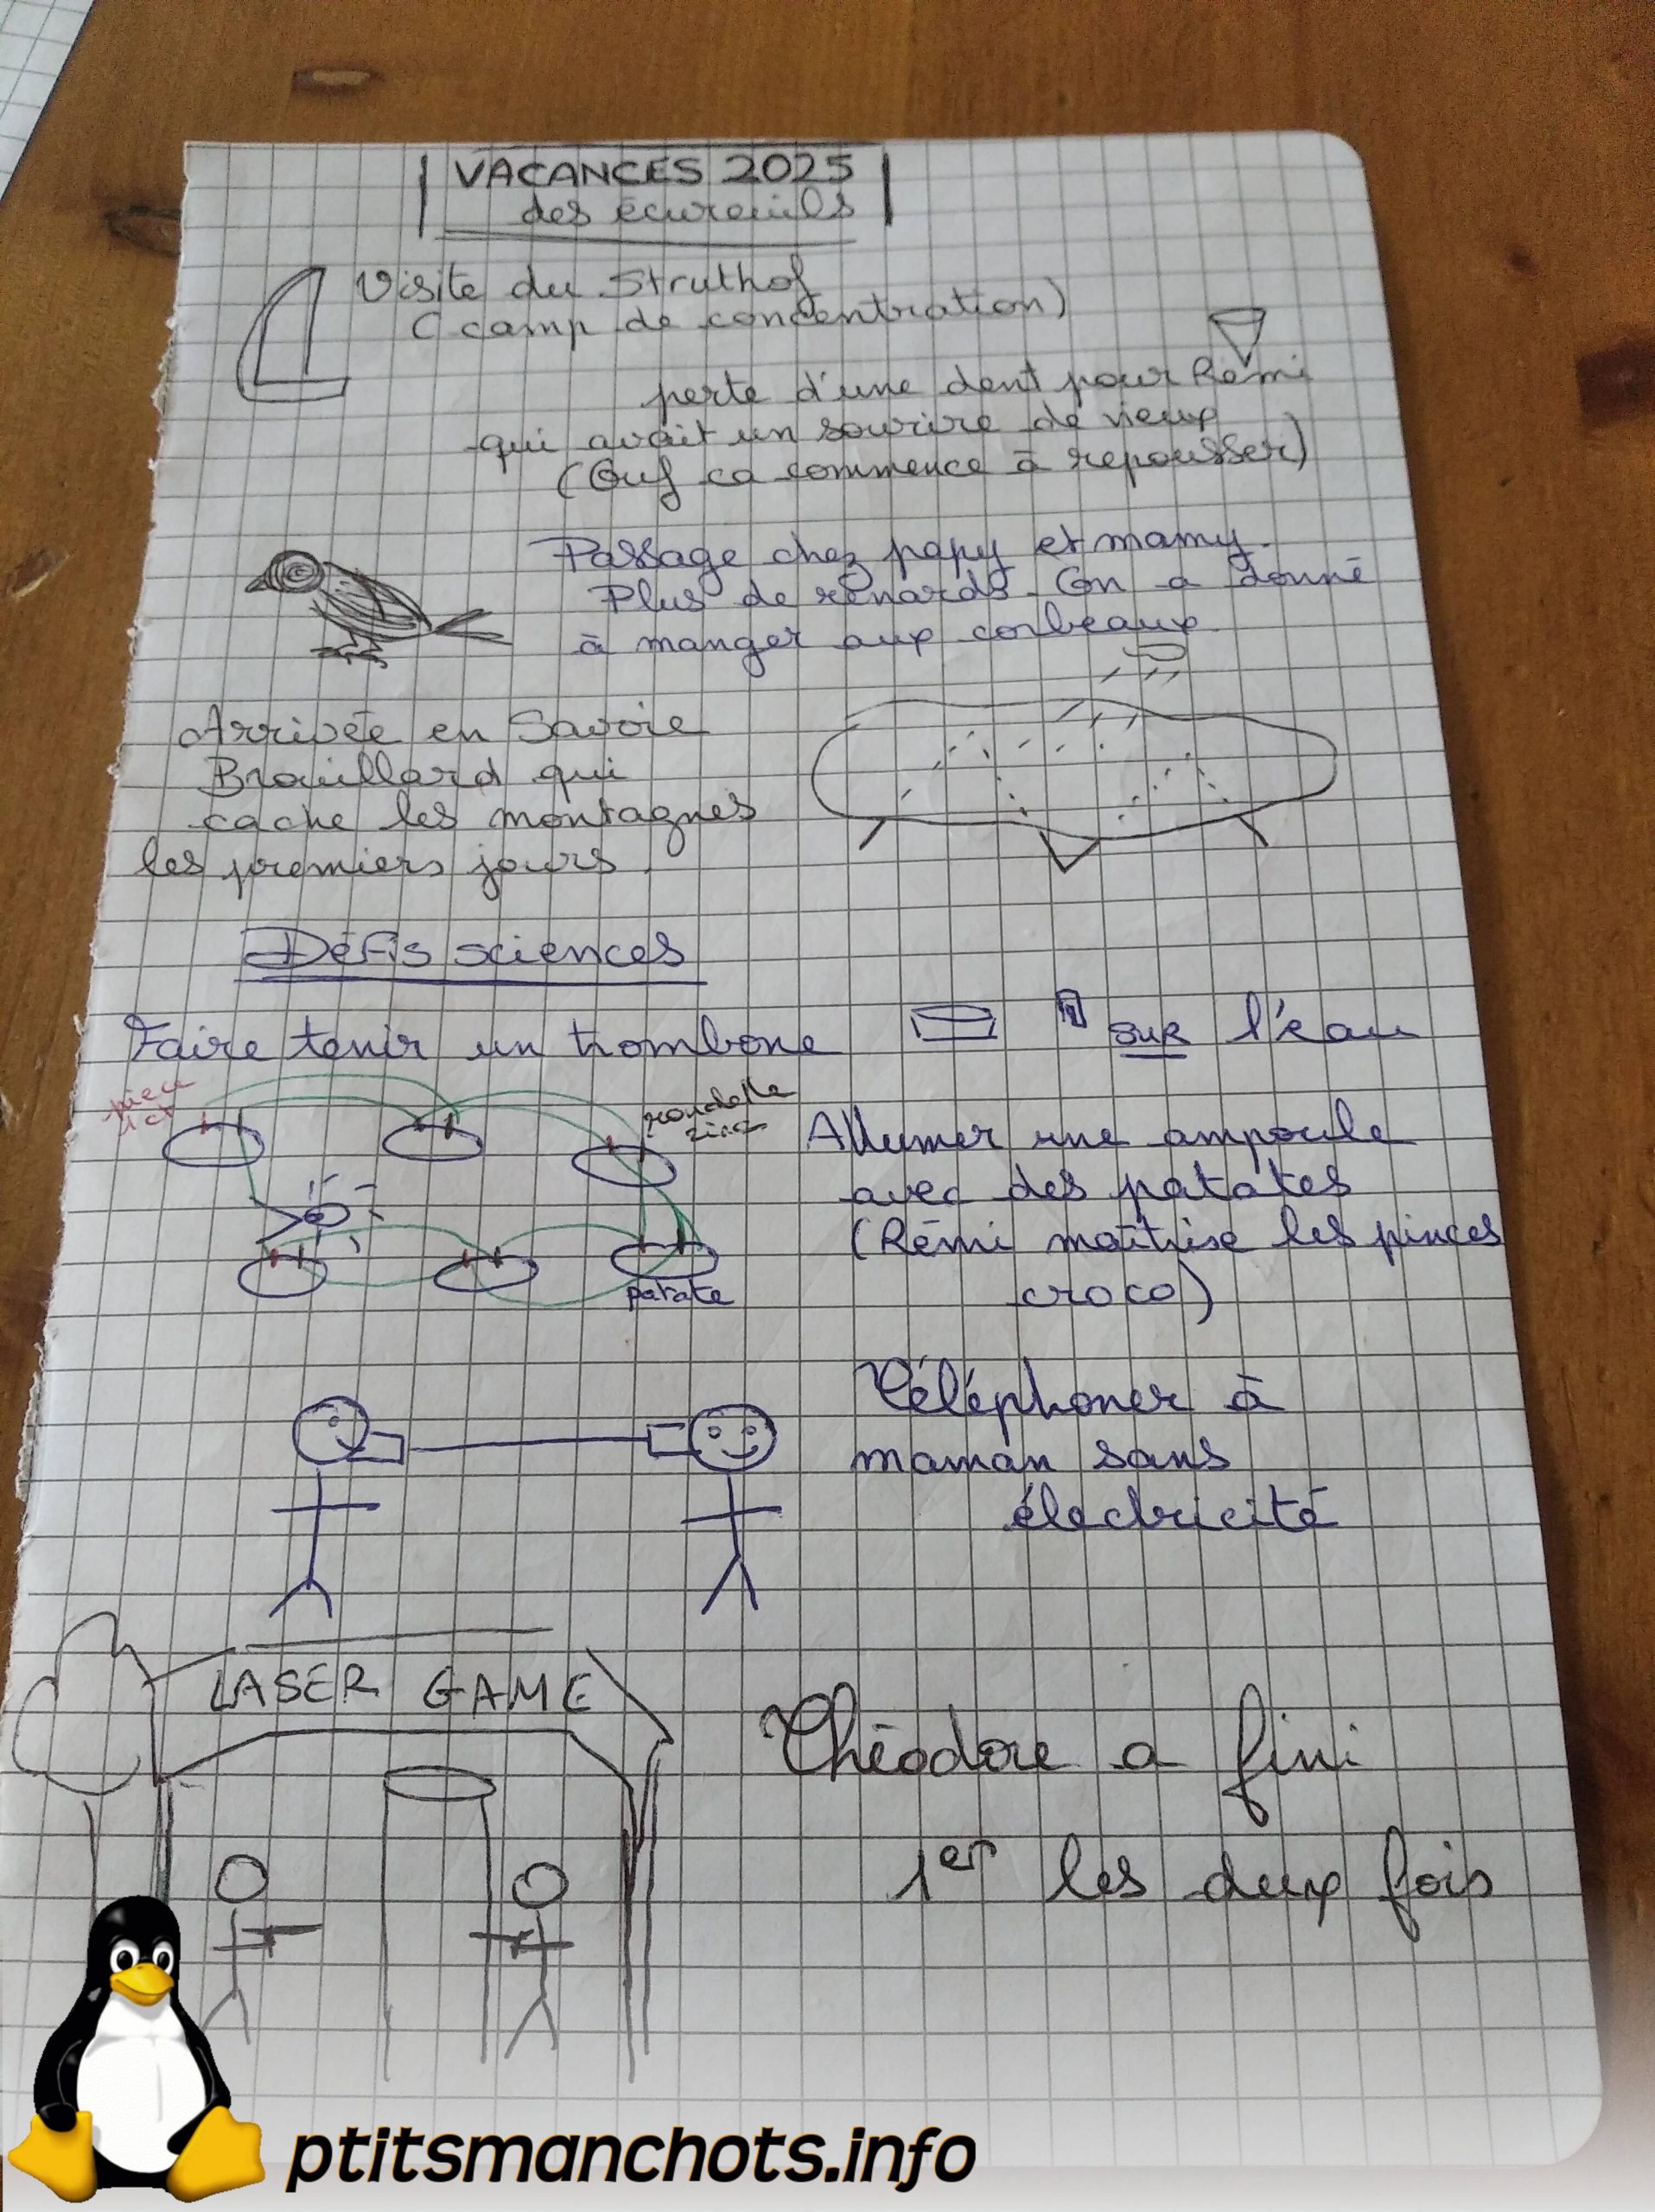 VACANCES 2025
des écureuils
Visite du Struthof
(camp de concentration)
perte d'une dent pour Rémi
qui avait un sourire de vieux
(Ouf ca commence à repousser)
Passage chez papy et mamy.
Plus de renards. On a donné
à manger aux corbeaux
Arrivée en Savoie
Brouillard qui
cache les montagnes
les premiers jours.
Défis sciences
Faire tenir un trombone sur l'eau
pièce
rondelle
zinc
Allumer une ampoule
avec des patates
(Rémi maîtrise les pinces
croco)
patate
Téléphoner à
maman sans
électricité
LASER GAME
Théodore a fini
1er les deux fois
ptitsmanchots.info